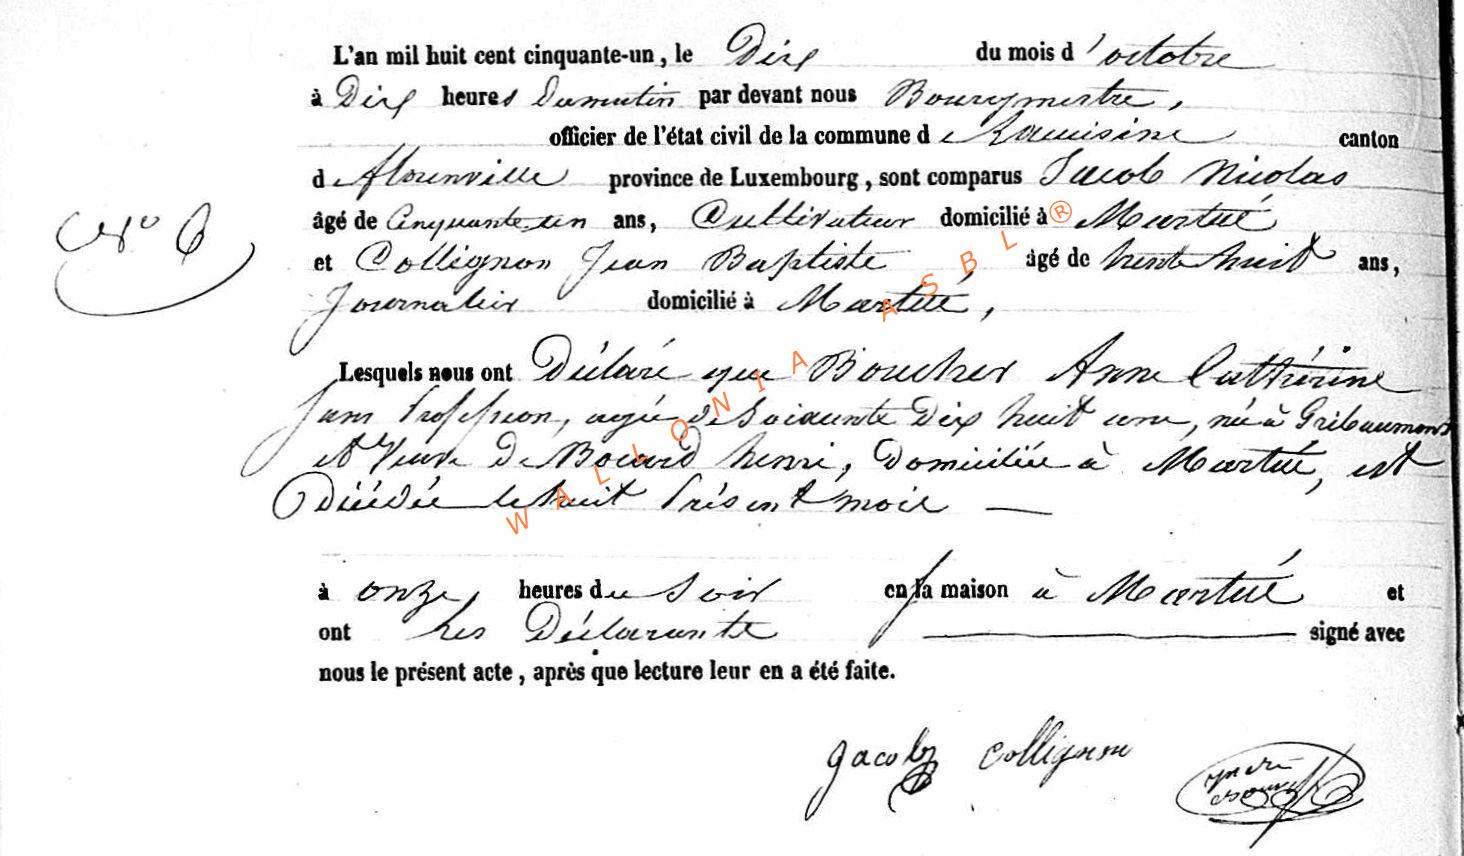 L'an mil huit cent cinquante-un, le Dix du mois d'octobre
à Dix heures Dumatin par devant nous Bourgmestre,
officier de l'état civil de la commune de canton
de florenville province de Luxembourg, sont comparus Jacob Nicolas
N° 6 âgé de Cinquante-un ans, Cultivateur domicilié à Martué
et Collignon Jean Baptiste, âgé de trente huit ans,
Journalier domicilié à Martué,
Lesquels nous ont Déclaré que Boucher Anne Cathérine
sans Profession, agée de Soixante Dix huit ans, née à Gribaumont
et Veuve De Bocard henri, Domiciliée à Martué, est
Décédée le huit Présent mois —
à onze heures du Soir en sa maison à Martué et
ont Les Déclarants — signé avec
nous le présent acte, après que lecture leur en a été faite.
Jacob Collignon
WALLONIA ASBL ®